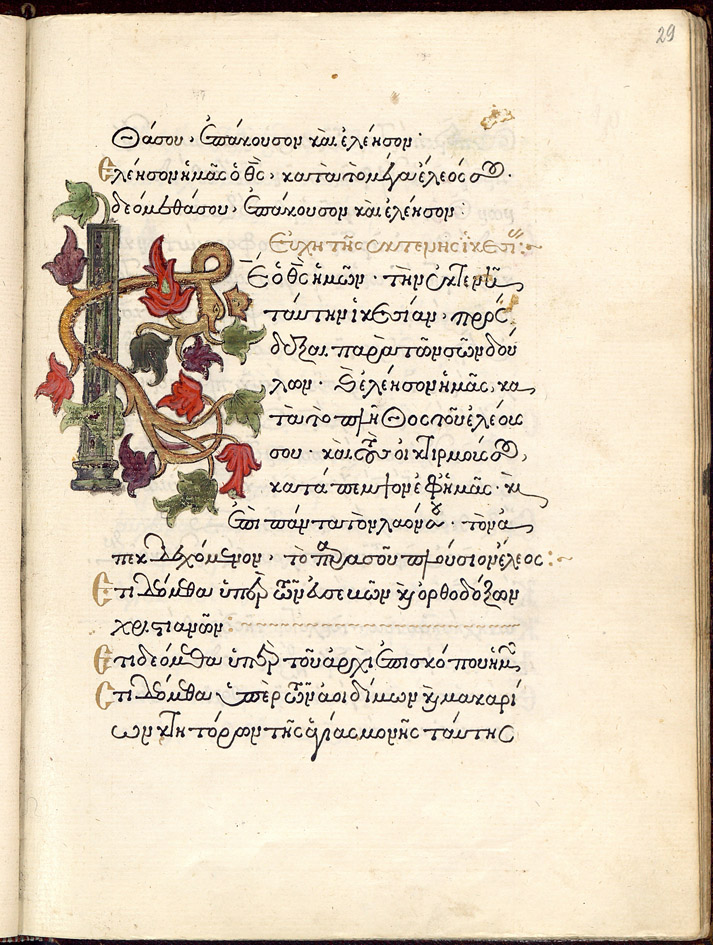 29
θάσου, ἐπάκουσον καὶ ἐλέησον·
Ἐλέησον ἡμᾶς ὁ θς, κατὰ τὸ μέγα ἔλεός σου.
δεόμεθά σου, ἐπάκουσον καὶ ἐλέησον:
Εὐχὴ τῆς ἐκτενῆς ἱκεσί:~
Κε ὁ θς ἡμῶν· τὴν ἐκτενῆ
ταύτην ἱκεσίαν, πρόσ
δεξαι παρὰ τῶν σῶν δού
λων· καὶ ἐλέησον ἡμᾶς, κα
τὰ τὸ πλῆθος τοῦ ἐλέους
σου· καὶ τοὺς οἰκτιρμούς σου,
κατάπεμψον ἐφ' ἡμᾶς· καὶ
ἐπὶ πάντα τὸν λαόν σου· τὸν ἀ
πεκδεχόμενον, τὸ παρὰ σοῦ πλούσιον ἔλεος:~
Ἔτι δεόμεθα ὑπὲρ τῶν εὐσεβῶν καὶ ὀρθοδόξων
χριστιανῶν:
Ἔτι δεόμεθα ὑπὲρ τοῦ ἀρχιεπισκόπου ἡμῶν
Ἔτι δεόμεθα ὑπὲρ τῶν ἀοιδίμων καὶ μακαρί
ων κτητόρων τῆς ἁγίας μονῆς ταύτης